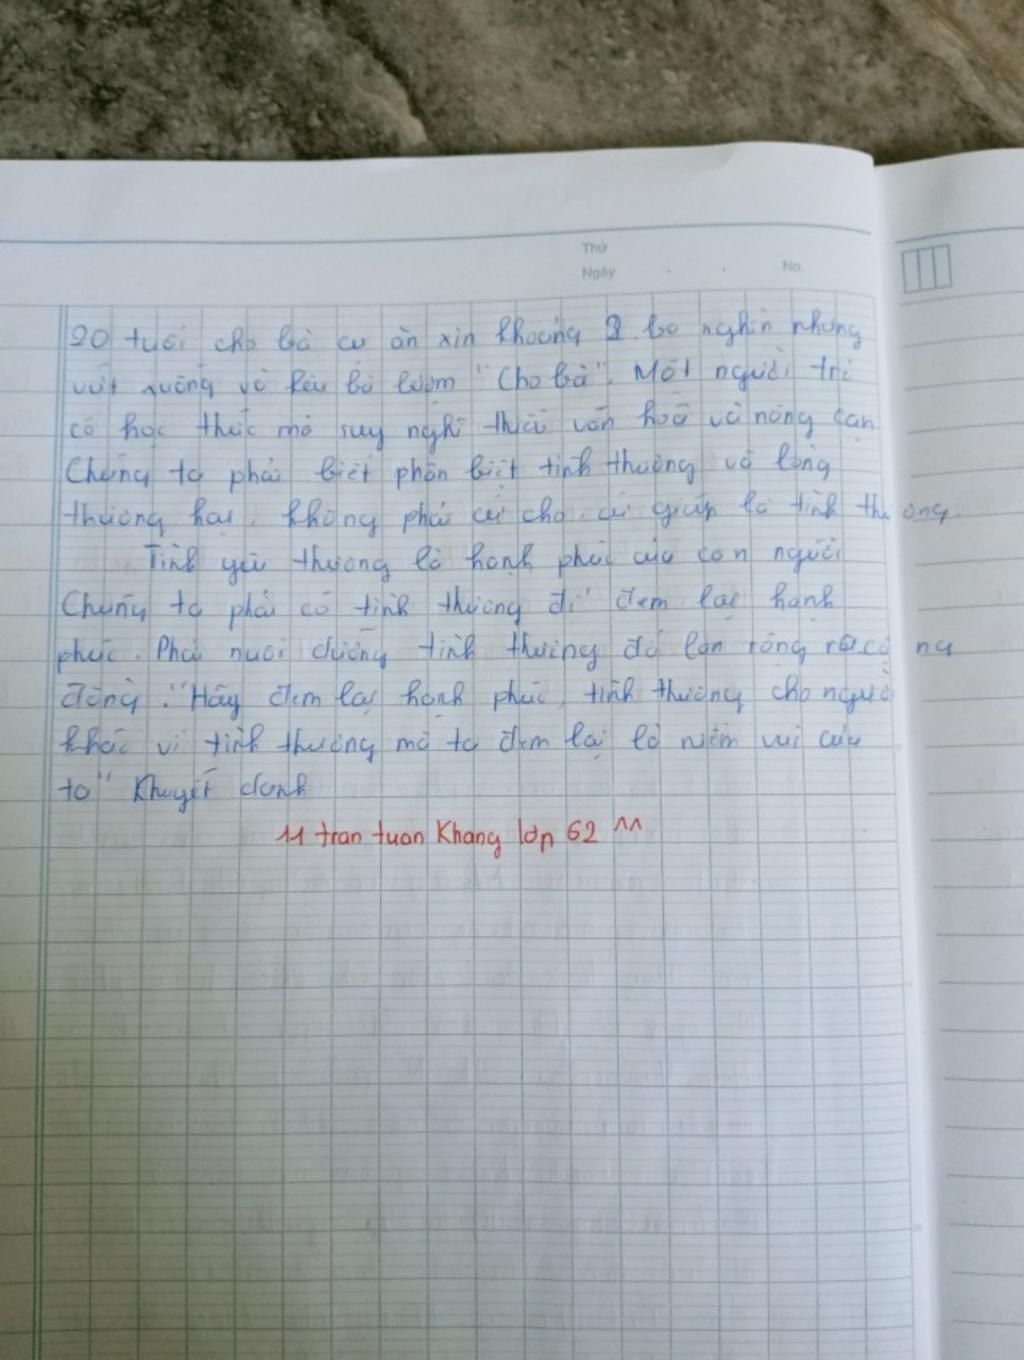 Thứ
Ngày
No.
20 tuổi cho bà cụ ăn xin khoảng nghìn nhưng
vứt xuống và kêu bà lượm "Cho bà". Một người trí
có học thức mà suy nghĩ thiếu văn hoá và nông cạn
Chúng ta phải biết phân biệt tình thương và lòng
thương hại, không phải cứ cho, cứ giúp là tình thương.
Tình yêu thương là hạnh phúc của con người
Chúng ta phải có tình thương để đem lại hạnh
phúc. Phải nuôi dưỡng tình thương đó lan rộng ra cộng
đồng. "Hãy đem lại hạnh phúc, tình thương cho người
khác vì tình thương mà ta đem lại là niềm vui của
ta" Khuyết danh
11 tran tuan Khang lớp 62 ^^